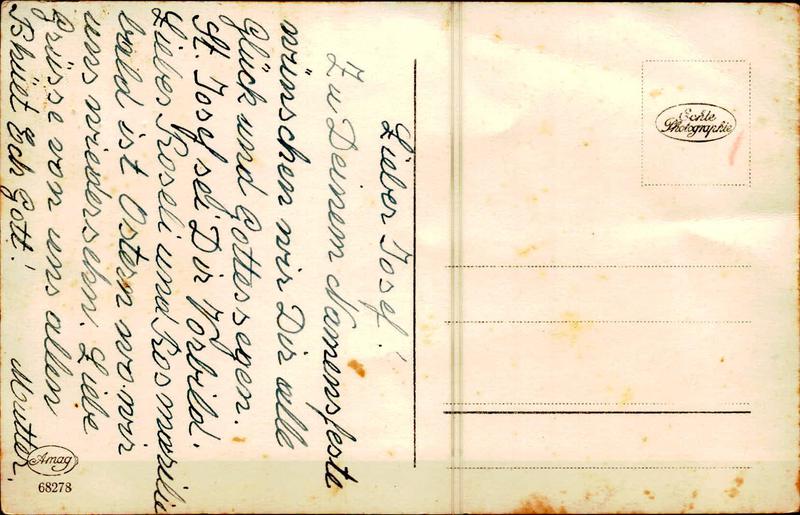 Lieber Josef!
Zu Deinem Namensfeste
wünschen wir Dir alle
Glück und Gottessegen.
St. Josef sei Dir Vorbild.
Liebes Roseli und Rosmarilie
bald ist Ostern wo wir
uns wiedersehn. Liebe
Grüsse von uns allen
Bhüet Ech Gott! Mutter.
Echte
Photographie
Amag
68278